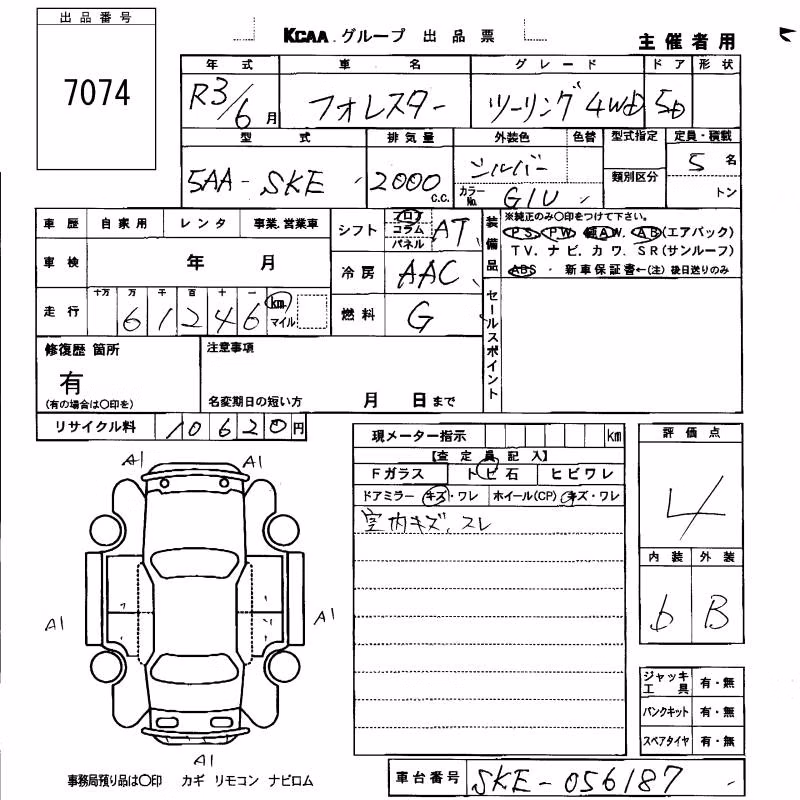 出品番号
7074
KCAA グループ 出品票
主催者用
年式 車名 グレード ドア 形状
R3/6月 フォレスター ツーリング 4WD 5D
型式 排気量 外装色 色替 型式指定 定員・積載
5AA-SKE 2000 c.c. シルバー 類別区分 5名
カラーNo. G1U トン
車歴 自家用 レンタ 事業.営業車
シフト フロア コラム パネル AT
装備品 ※純正のみ〇印をつけて下さい。
PS. PW. 純AW. AB(エアバック)
TV. ナビ. カワ. SR(サンルーフ)
ABS . 新車保証書←(注)後日送りのみ
車検 年 月
冷房 AAC
走行 十万 万 千 百 十 一
61246 km. マイル
燃料 G
セールスポイント
修復歴 箇所
有
(有の場合は〇印を)
注意事項
名変期日の短い方 月 日まで
リサイクル料 10620円
現メーター指示 km
【査定員記入】
Fガラス トビ石 ヒビワレ
ドアミラー キズ・ワレ ホイール(CP) キズ・ワレ
室内キズ、スレ
評価点
4
内装 外装
b B
A1 A1
A1 A1
A1
ジャッキ工具 有・無
パンクキット 有・無
スペアタイヤ 有・無
事務局預り品は〇印 カギ リモコン ナビロム
車台番号 SKE-056187